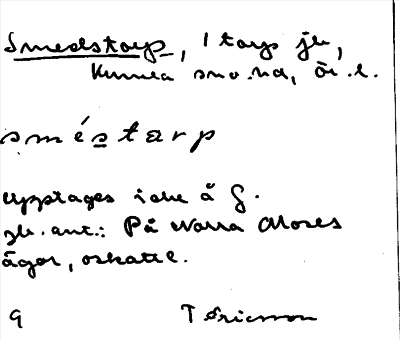 Smedstorp, 1 torp jb,
Kumla snd, Ör. l.
sméstarp
Upptages icke å G.
jb. ant.: På Norra Mores
ägor, oskatt.
9 T Ericsson